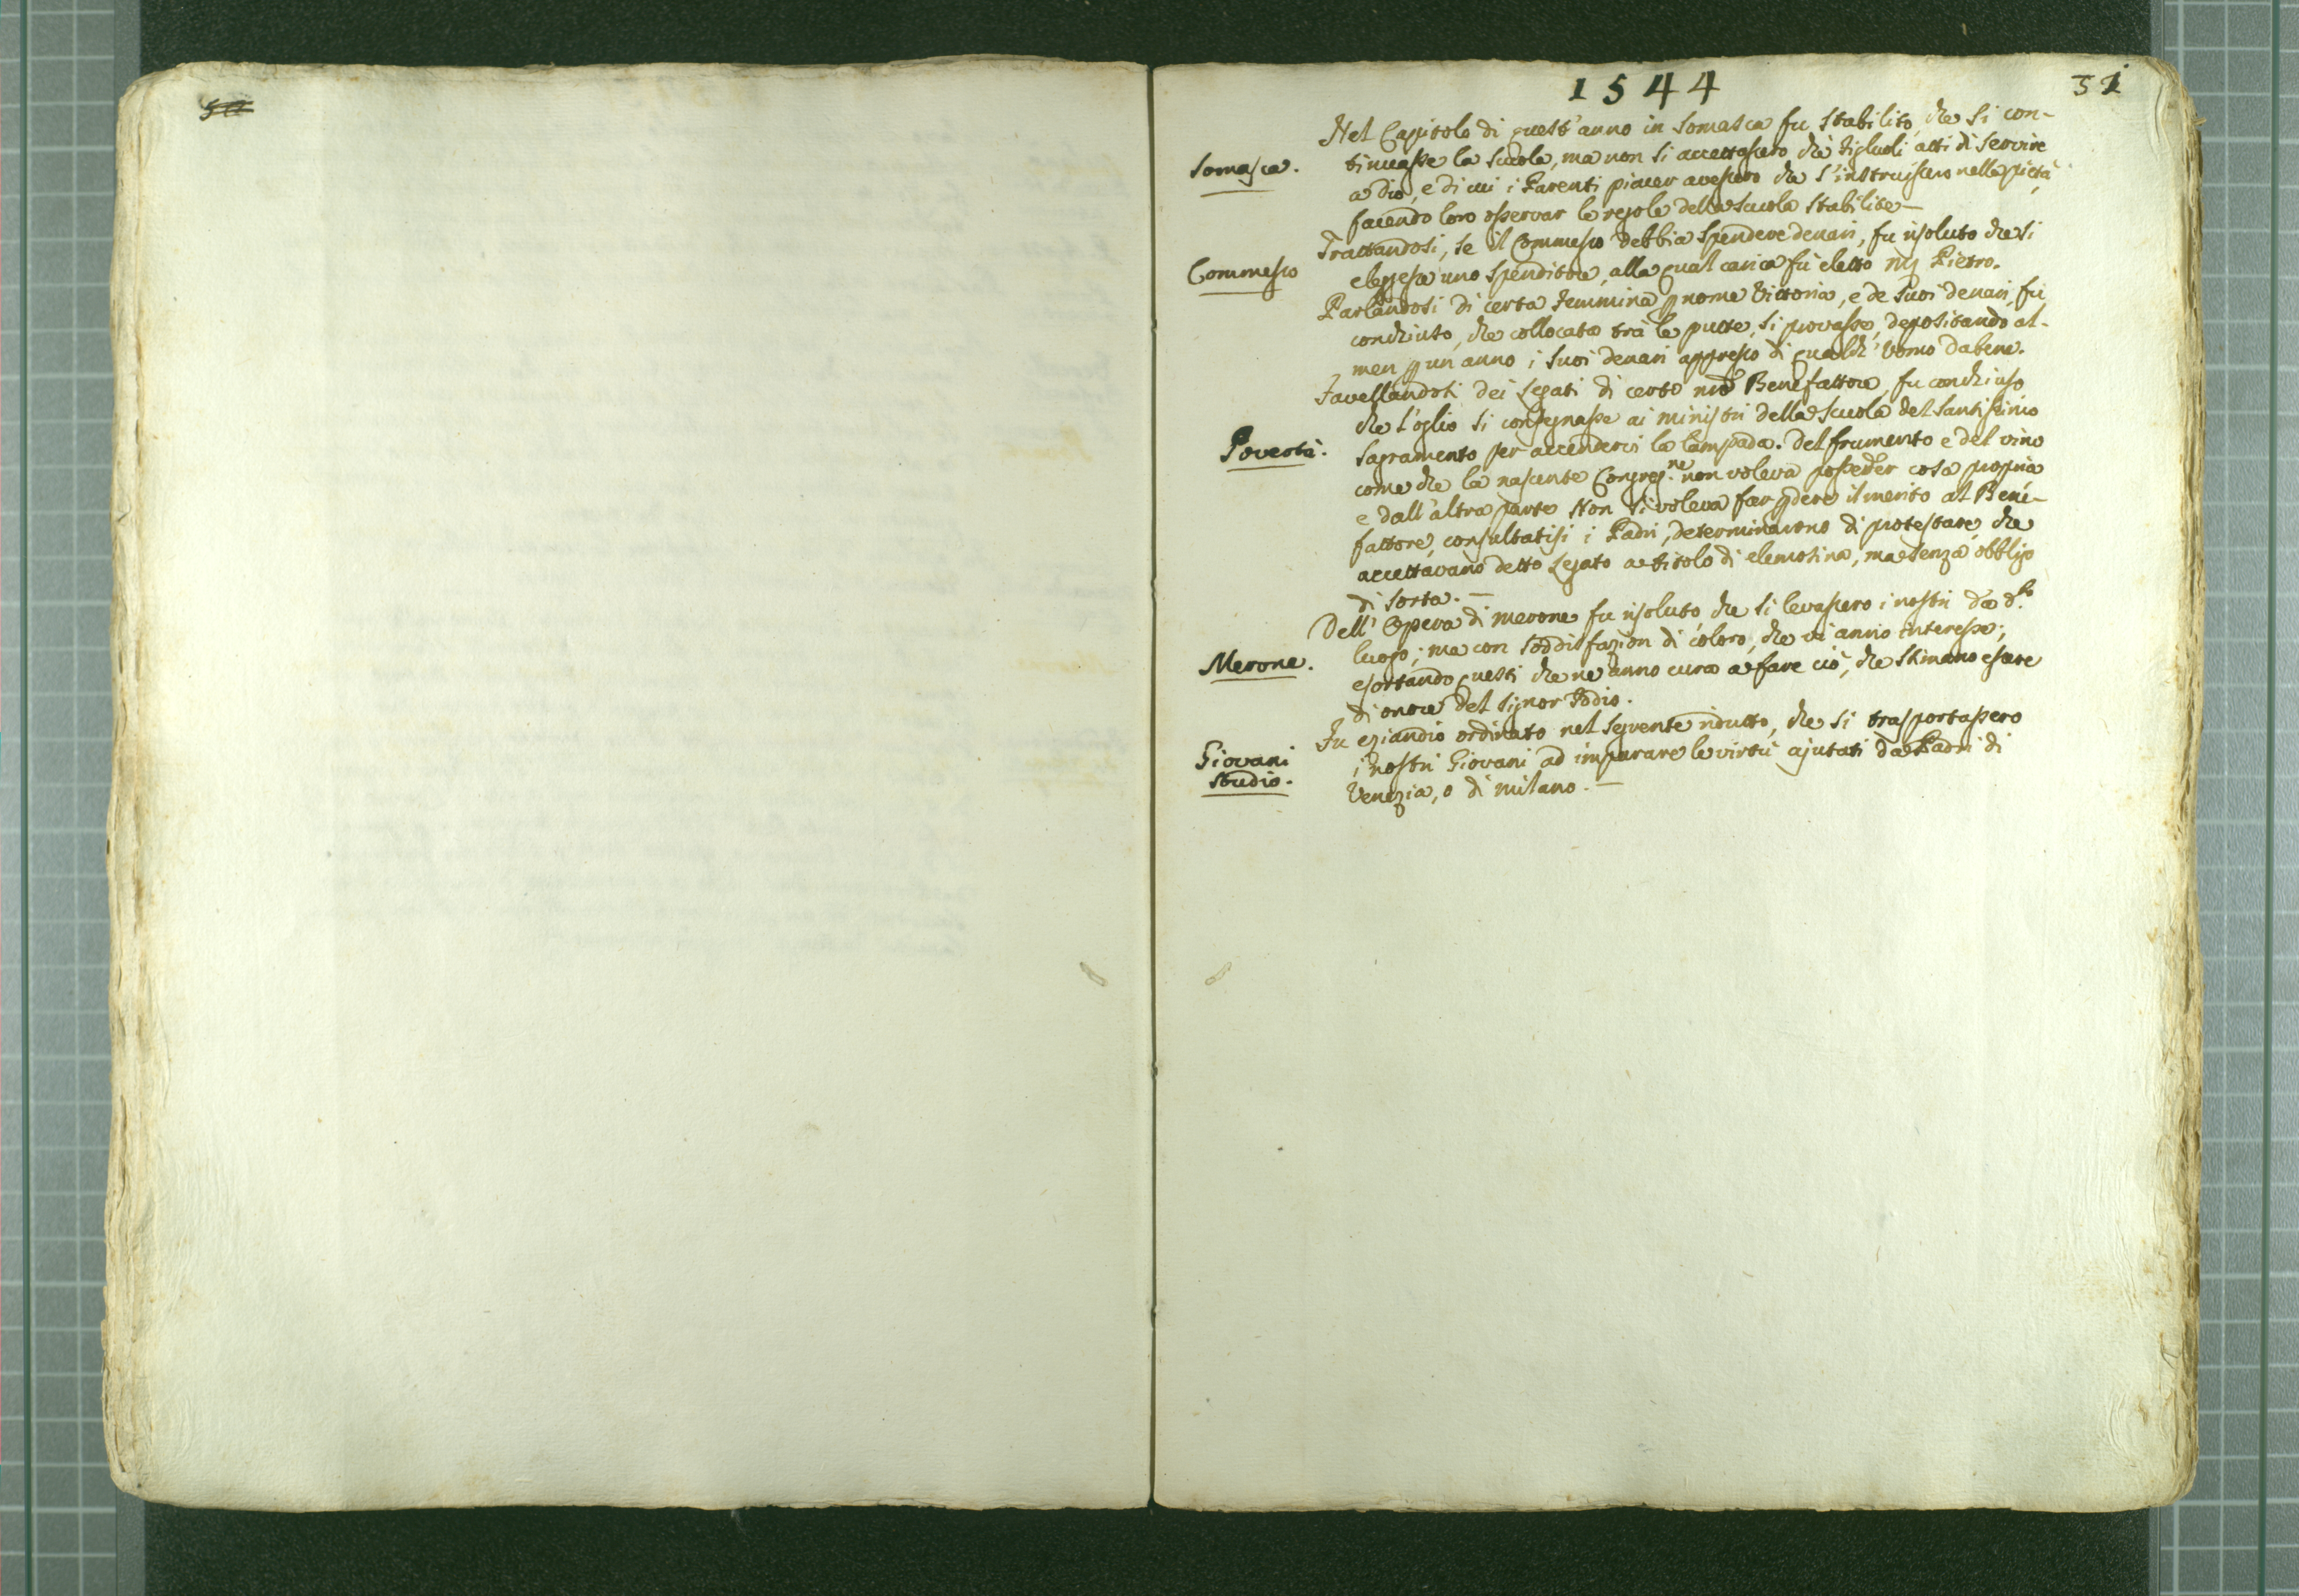 1544
31
Nel Capitolo di quest'anno in Somasca fu stabilito, che si con-
Somasca.
tinuasse la scuola, ma non si accettassero che figliuoli atti di servire
a Dio, e di cui i Parenti piacer avessero che s'instruissero nella pietà,
facendo loro osservar le regole della scuola stabilite —
Trattandosi, se il Commesso debbia spendere denari, fu risoluto che si
Commesso
eleggesse uno spenditore, alla qual carica fu eletto Pietro.
Parlandosi di certa femmina nome Vittoria, e de suoi denari, fu
conchiuso, che collocata trà le putte, si provasse, depositando al-
men un anno i suoi denari appresso di qualch' Uomo dabene.
Favellandosi dei Legati di certo Benefattore, fu conchiuso
che l'oglio si consegnasse ai ministri della scuola del Santissimo
Povertà.
Sagramento per accenderci la lampada. Del frumento e del vino
come che la nascente Congreg.ne non voleva posseder cosa propria
e dall'altra parte Non si voleva far pdere il merito al Bene-
fattore, consultatisi i Padri, determinarono di protestare, che
accettavano detto Legato a titolo di elemosina, ma senza obbligo
di sorta. —
Dell' Opera di Merone fu risoluto che si levassero i nostri da d.to
Merone.
luogo; ma con soddisfazion di coloro, che vi anno interesse;
esortando questi che ne anno cura a fare ciò, che stimano essere
di onore del Signor Iddio.
Fu eziandio ordinato nel seguente ridutto, che si trasportassero
Giovani
Studio.
i nostri Giovani ad imparare le virtù ajutati da Padri di
Venezia, o di Milano. —